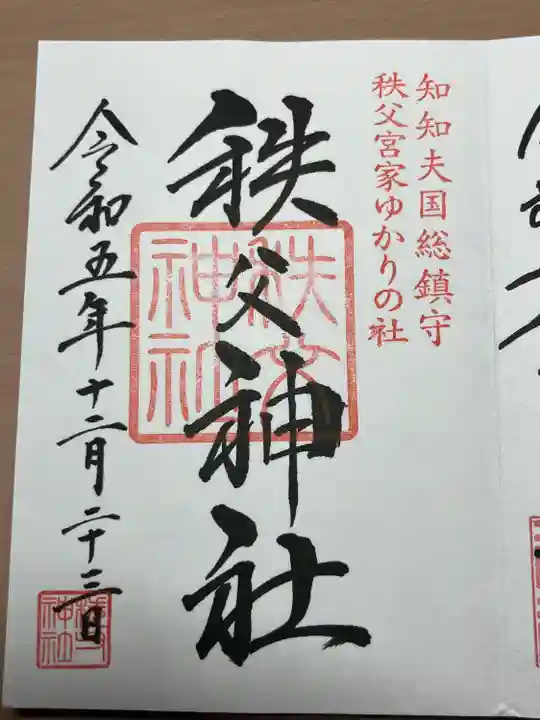 知知夫国総鎮守
秩父宮家ゆかりの社
秩父神社
秩父神社
令和五年十二月二十三日